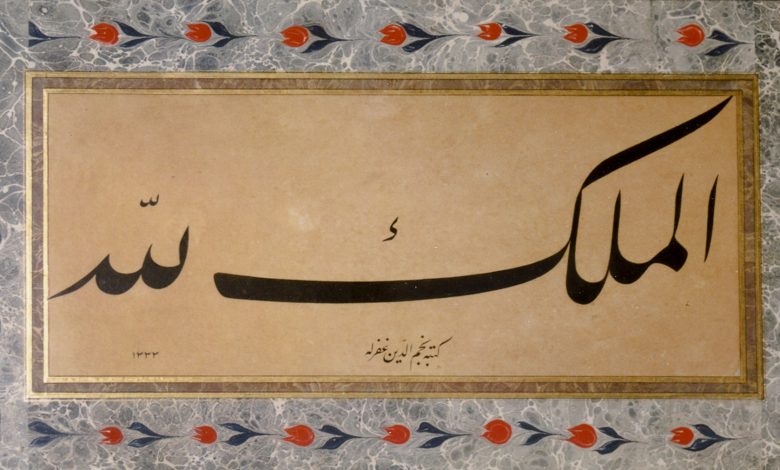 الملك لله
كتبه نجم الدين غفرله
١٣٣٤